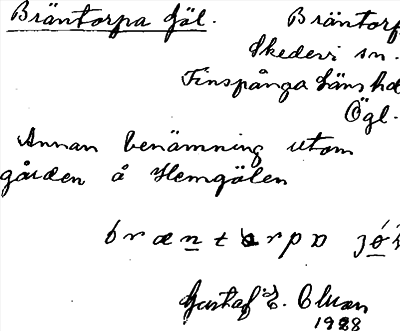 Bräntorpa Göl. Bräntorp
Skedevi sn.
Finspånga läns hd
Ögl.
Annan benämning utom
gården å Hemgölen
brænt rpɒ jö
Gustaf E.
1928